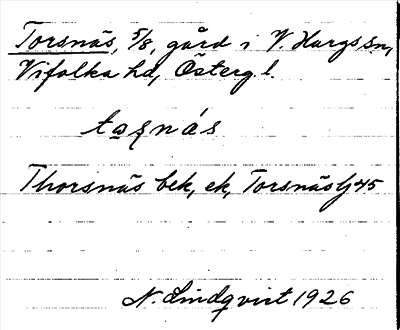 Torsnäs, 5/8, gård i V. Hargs sn,
Vifolka hd, Österg. l.
Thorsnäs bek, ek, Torsnäs
N. Lindqvist 1926